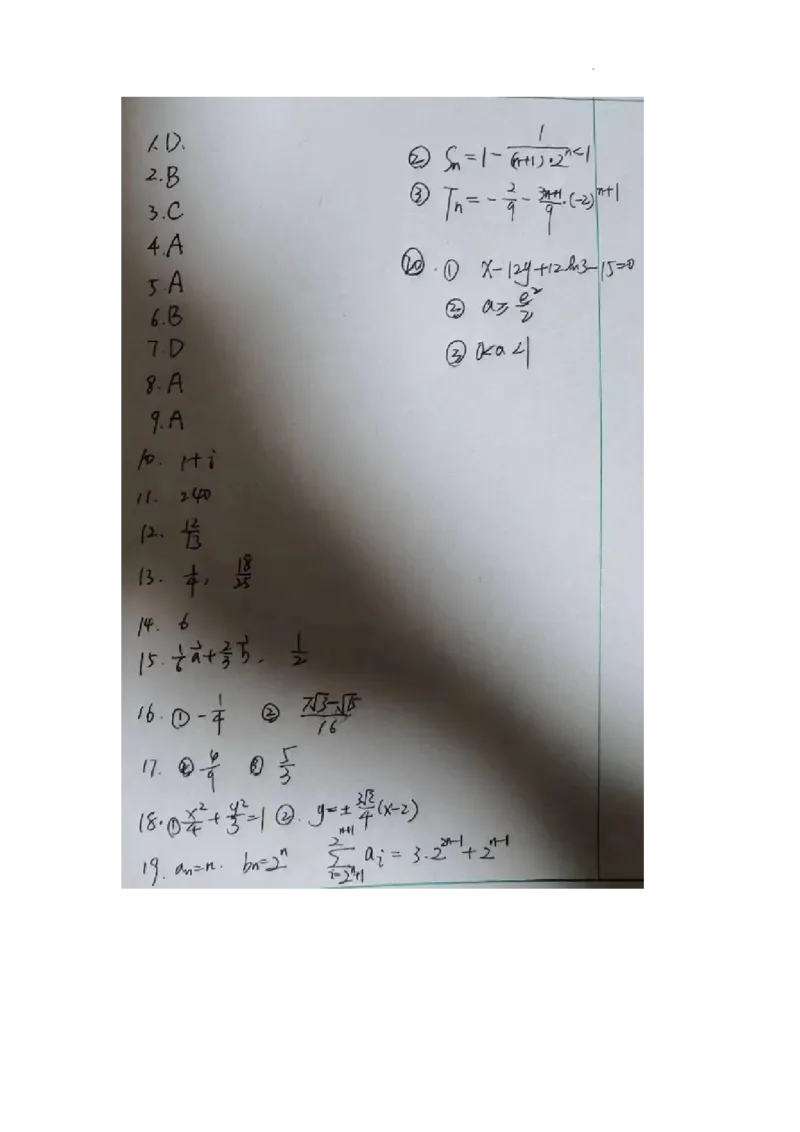 1.D.
2.B
3.C
4.A
5.A
6.B
7.D
8.A
9.A
10. 1+i
11. 240
12. 12/13
13. 1/4, 18/25
14. 6
15. 1/6 a⃗ + 2/3 b⃗, 1/2
16. ① -1/4 ② (7√3-√15)/16
17. ② 6/9 ③ 5/3
18. ① x²/4 + y²/3 = 1 ②. y = ± 3√2/4 (x-2)
19. aₙ=n. bₙ=2ⁿ ∑_{i=2ⁿ+1}^{2ⁿ⁺¹} aᵢ = 3·2²ⁿ⁻¹ + 2ⁿ⁻¹
② Sₙ = 1 - 1/((n+1)·2ⁿ) < 1
③ Tₙ = - 2/9 - (3n+1)/9 ·(-2)ⁿ⁺¹
⑳. ① x-12y+12ln3-15=0
② a ≥ e²/2
③ 0<a<1